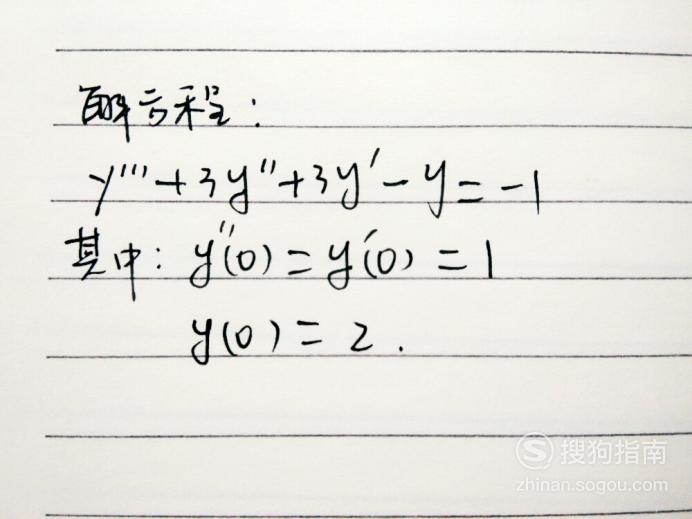 解方程:
y'''+3y''+3y'-y=-1
其中: y''(0)=y'(0)=1
y(0)=2.
S 搜狗指南
zhinan.sogou.com